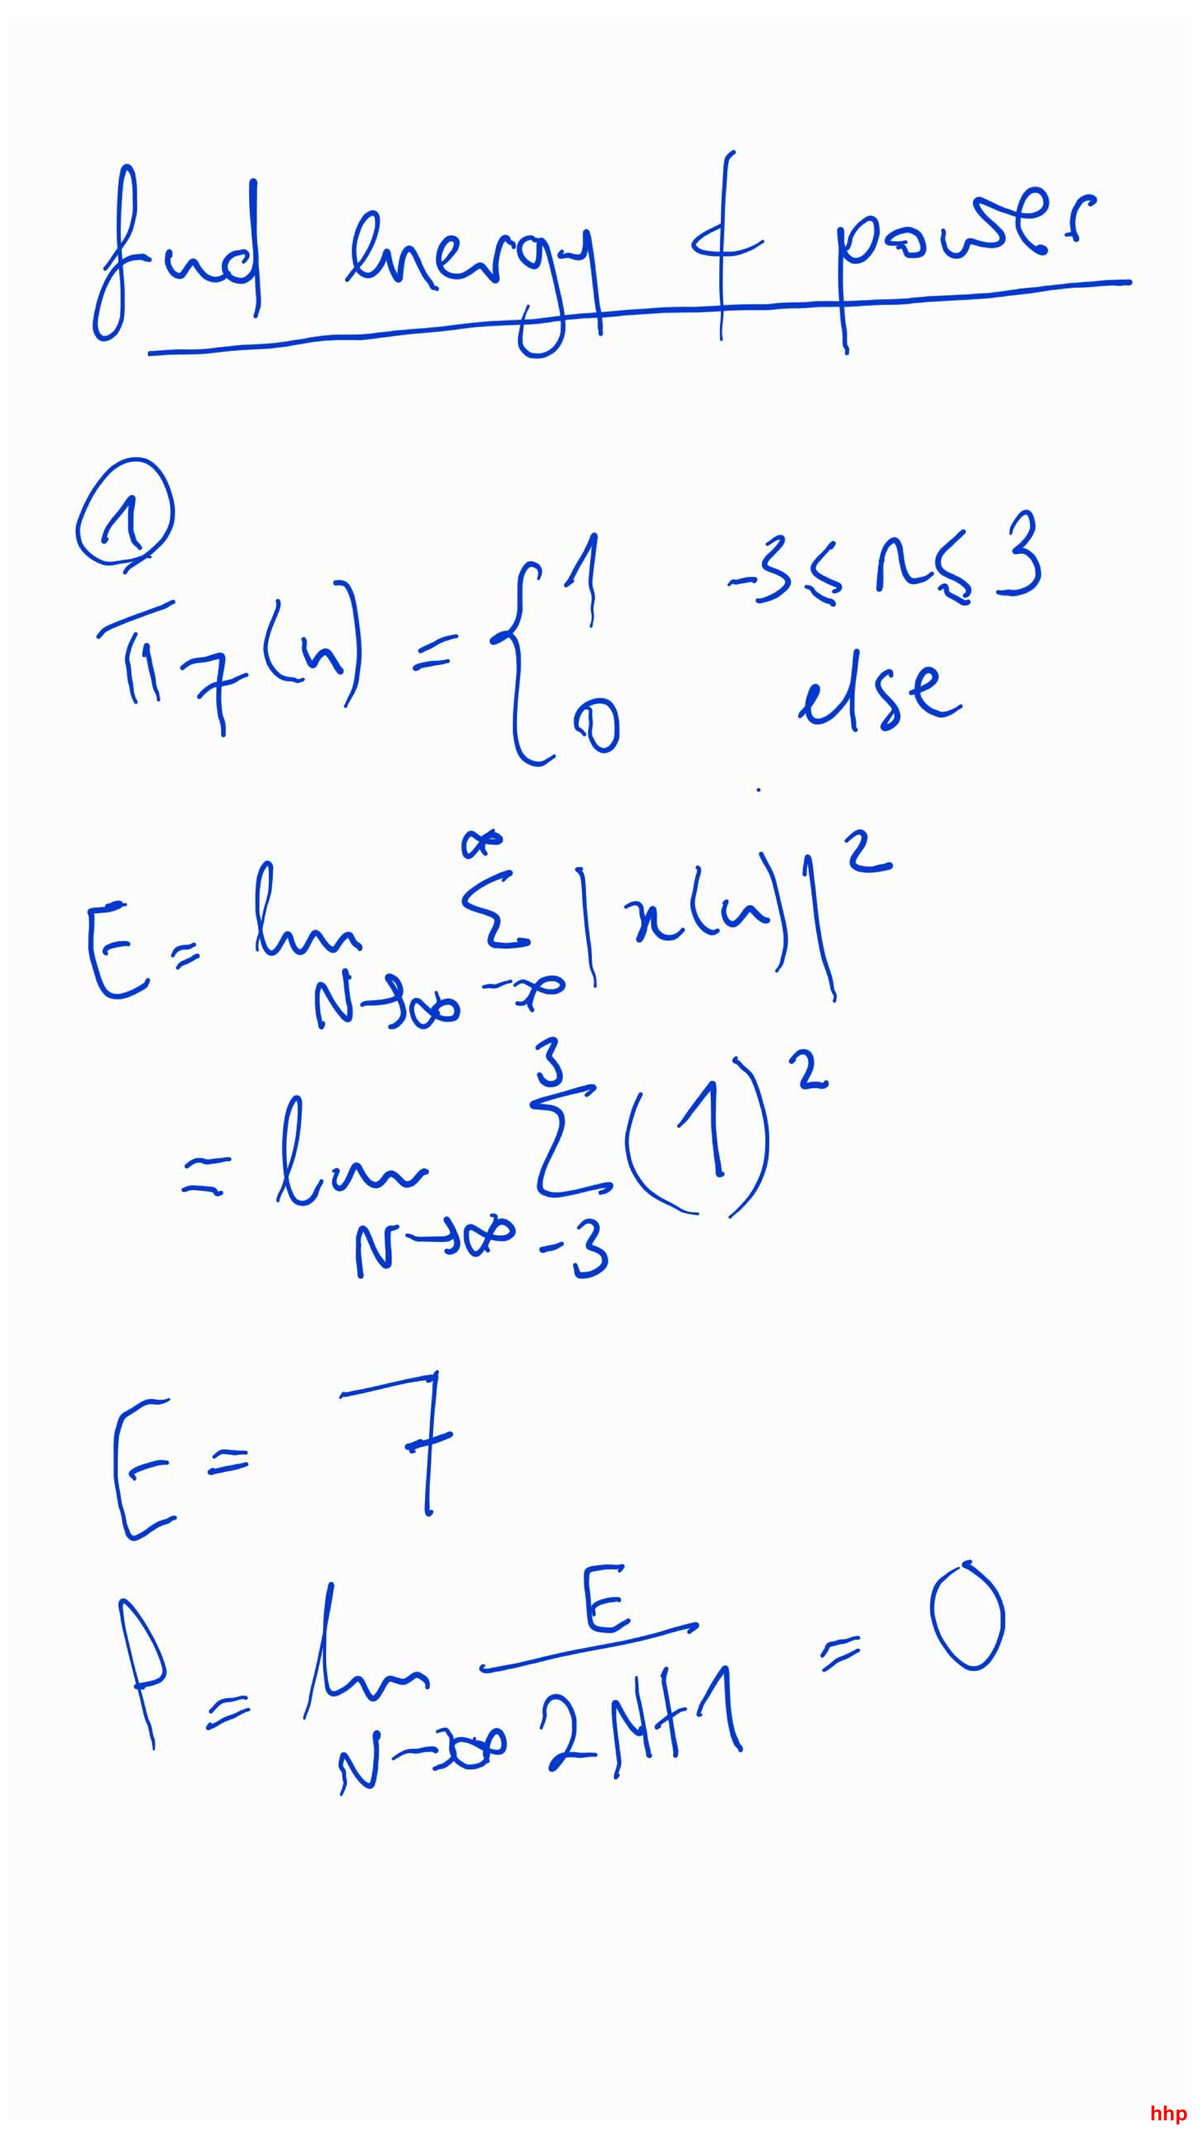 find energy & power
①
π7(n) = { 1 -3 ≤ n ≤ 3
0 else
E = lim N→∞ ∞ Σ -∞ |x(n)|²
= lim N→∞ 3 Σ -3 (1)²
E = 7
P = lim N→∞ E / 2N+1 = 0
hhp